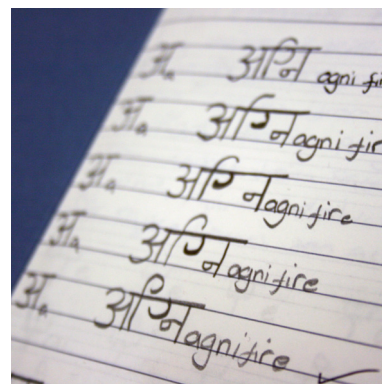 अ a अग्नि agni fire
अ a अग्नि agni fire
अ a अग्नि agni fire
अ a अग्नि agni fire
अ a अग्नि agni fire ✓